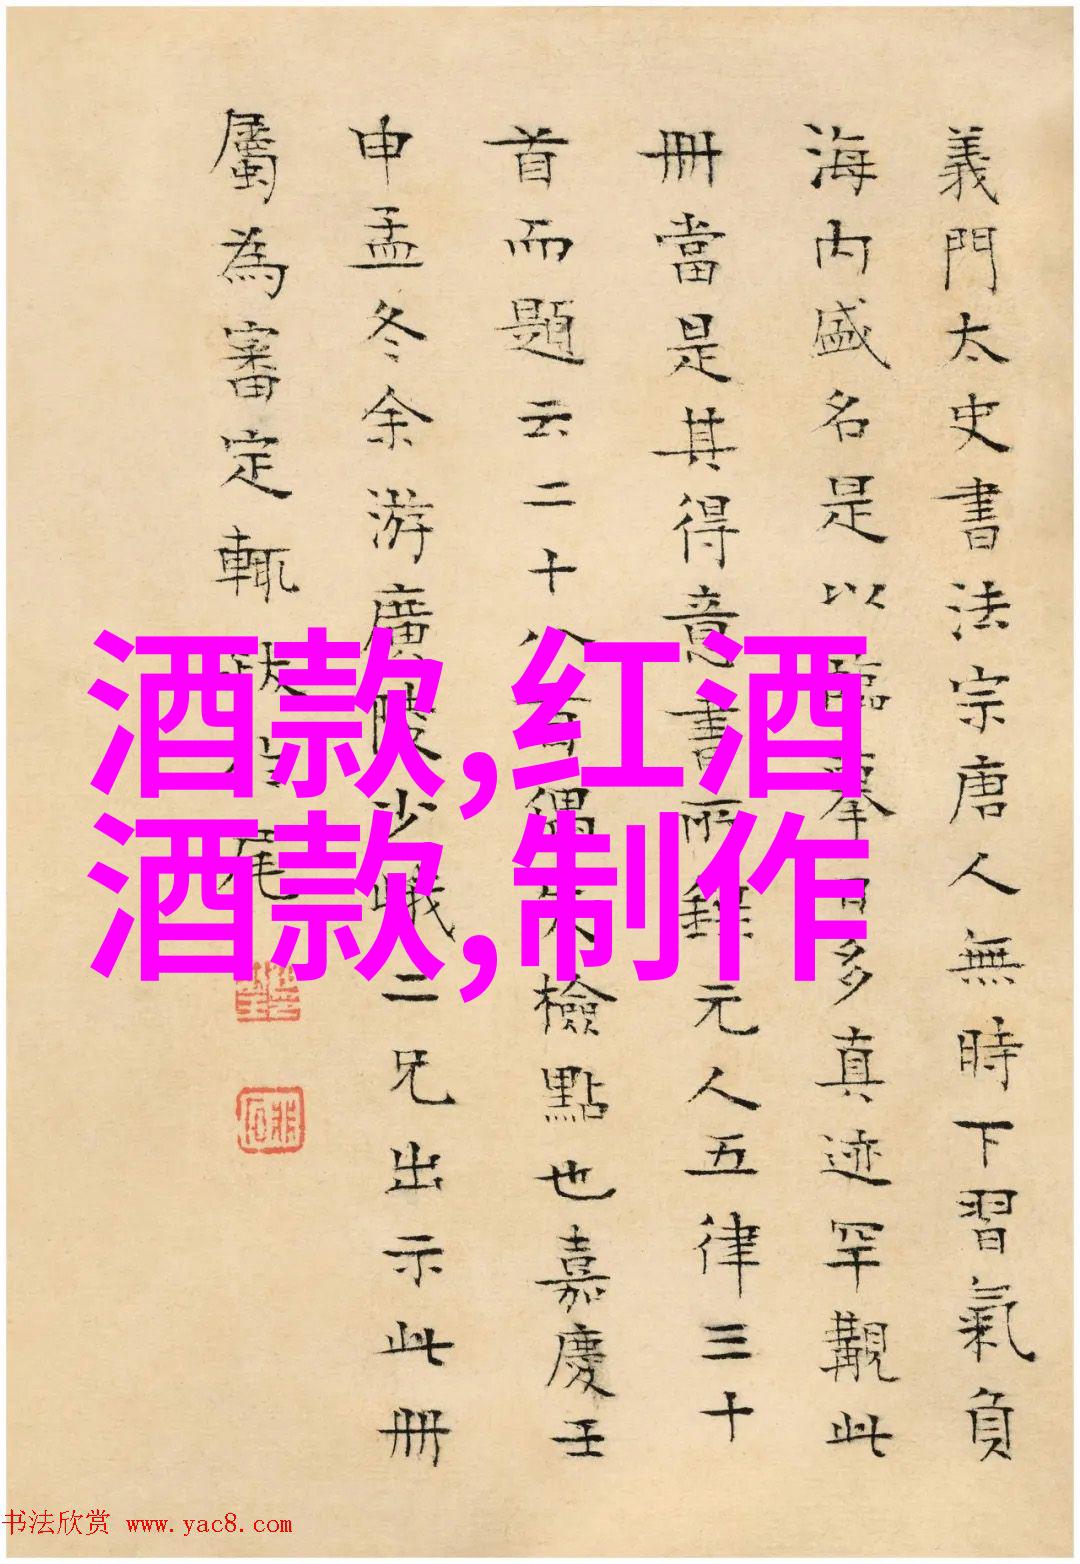 義門太史書法宗唐人無時下習氣負
海内盛名是以臨摹日多真迹罕觀此
冊當是其得意書所錄元人五律三十
首而題云二十偶失檢點也嘉慶壬
申孟冬余游廣陵少峨二兄出示此冊
屬為審定輒跋尾
酒款,红酒
酒款,制作
书法欣赏 www.yac8.com